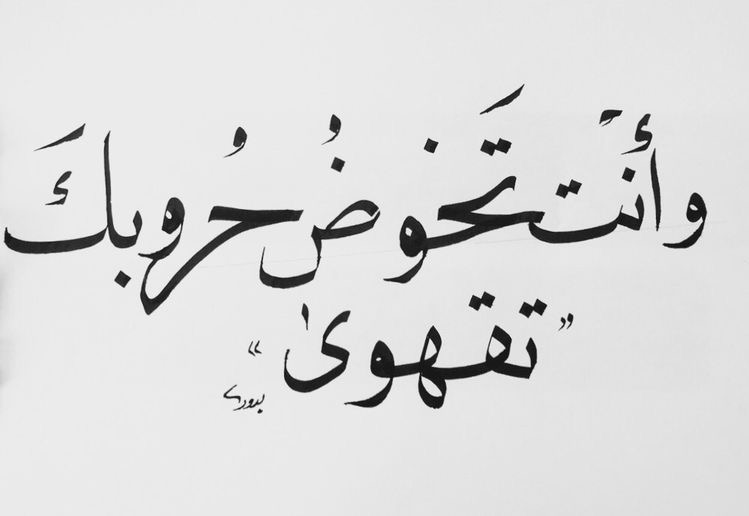 وأنت تَخوضُ حُروبكَ
"تقهوىٰ"